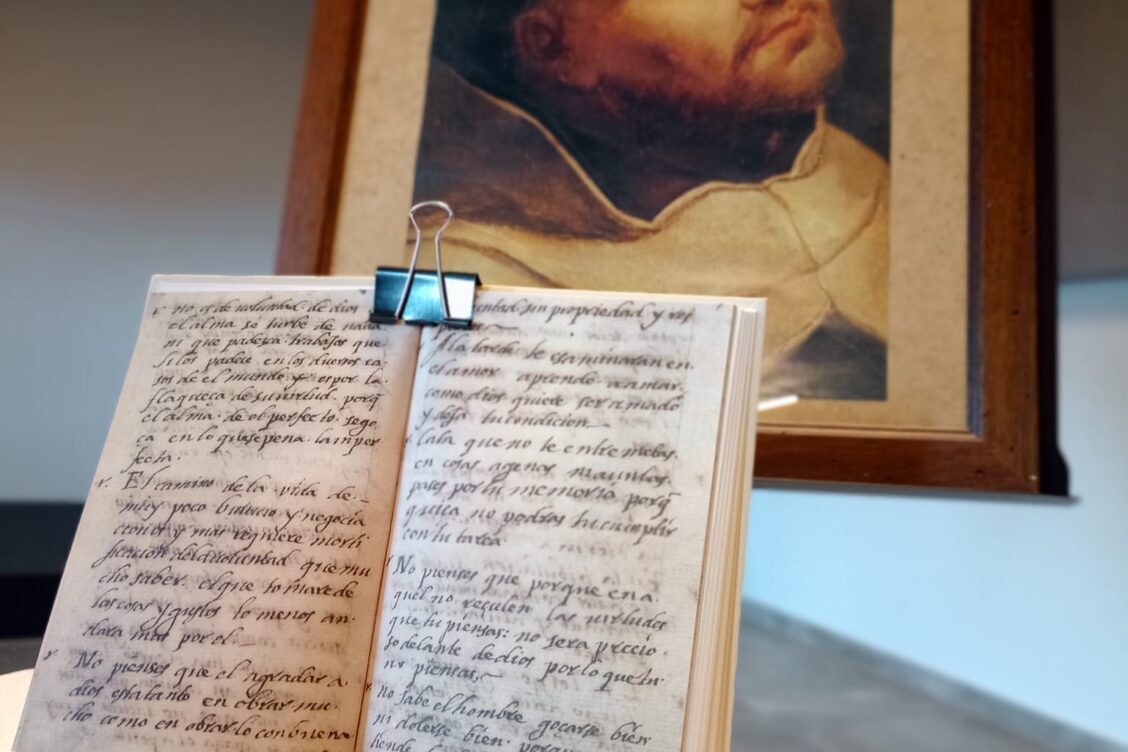 no es de voluntad de dios
el alma se turbe de nada
ni que padezca trabajos que
si los padece en los diversos ca-
sos de el mundo y es por la
flaqueça de su virtud porq̃
el alma de el perfecto se go
ça en lo que se pena la imper
fecta.
El camino de la vida de
muy poco bullicio y negocia
cion es y mas requiere morti
ficacion de la voluntad que mu
cho saber. el que tomare de
las cosas y gustos lo menos an
dara mas por el.
No pienses que el agradar a
dios esta tanto en obrar mu
cho como en obrarlo con buena
sin propriedad y res
A la tarde te examinaran en
el amor aprende a amar
como dios quiere ser amado
y dexa tu condicion
Cata que no te entremetas
en cosas agenas ni aun las
pases por tu memoria porq̃
quiça no podras tu cumplir
con tu tarea
No pienses que porque en a
quel no reçulen las virtudes
que tu piensas: no sera precio
so delante de dios por lo que tu
no piensas,
No sabe el hombre goçarse bien
ni dolerse bien porque
tiende